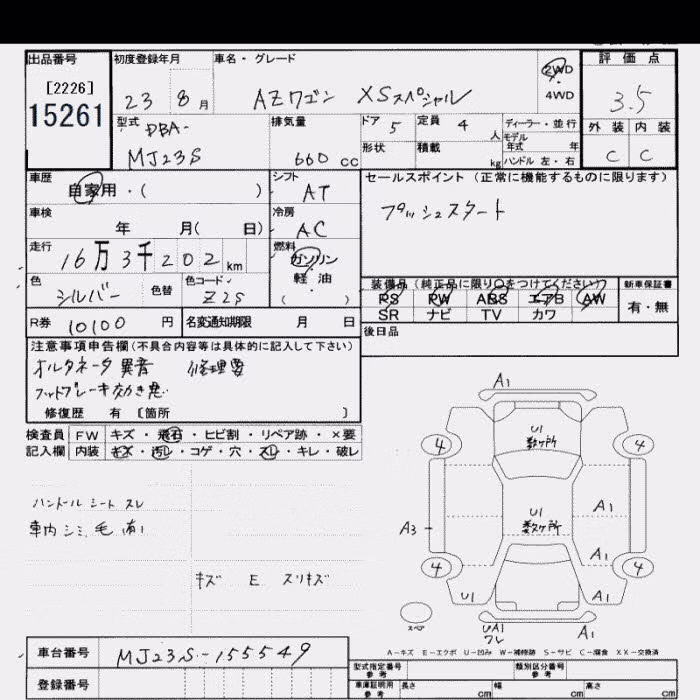 出品番号 初度登録年月 車名・グレード 2WD 評価点
[2226] 23 8月 AZワゴン XSスペシャル 4WD 3.5
15261 型式 DBA- 排気量 ドア 5 定員 4人 ディーラー・並行 外装 内装
MJ23S 660cc 形状 積載 kg モデル年式 年 ハンドル 左・右 C C
車歴 自家用・( ) シフト AT セールスポイント (正常に機能するものに限ります)
車検 年 月( 日) 冷房 AC プッシュスタート
走行 16万3千202km 燃料 ガソリン
色 シルバー 色替 色コード Z2S 軽油 ( ) 装備品 (純正品に限り○をつけてください) 新車保証書
PS PW ABS エアB AW 有・無
R券 10100円 名変通知期限 月 日 SR ナビ TV カワ
注意事項申告欄(不具合内容等は具体的に記入して下さい) 後日品
オルタネータ異音 修理要
フットブレーキ効き悪
修復歴 有 〔箇所 〕
A1
検査員 FW キズ・飛石・ヒビ割・リペア跡・×要
記入欄 内装 キズ・汚レ・コゲ・穴・スレ・キレ・破レ
U1
数ヶ所
4 4
ハンドル シート スレ
車内シミ、毛 有り
A3 U1 A1
数ヶ所
A1
キズ E スリキズ
4 4
U1 A1
スペア UA1 A1
ワレ
A-キズ E-エクボ U-凹み W-補修跡 S-サビ C-腐食 XX-交換済
車台番号 MJ23S-155549 型式指定番号 参考 類別区分番号 参考
登録番号 車庫証明用 参考 長さ cm 幅 cm 高さ cm